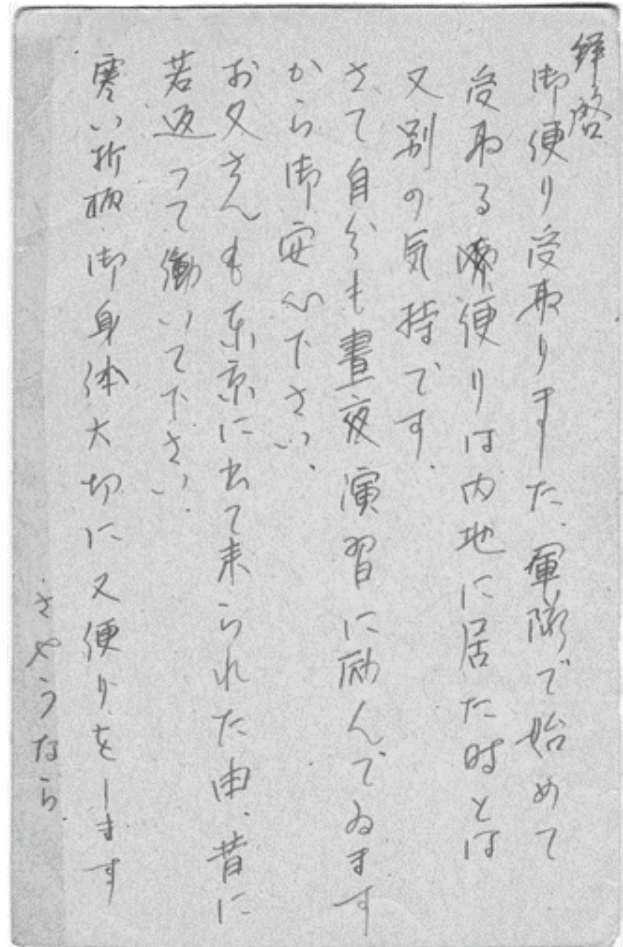 拝啓
御便り受取りました、軍隊で始めて
受取る御便りは内地に居た時とは
又別の気持です。
さて自分も晝夜演習に励んでゐます
から御安心下さい、
お父さんも東京に出て来られた由、昔に
若返って働いて下さい、
寒い折柄御身体大切に又便りをします
さやうなら